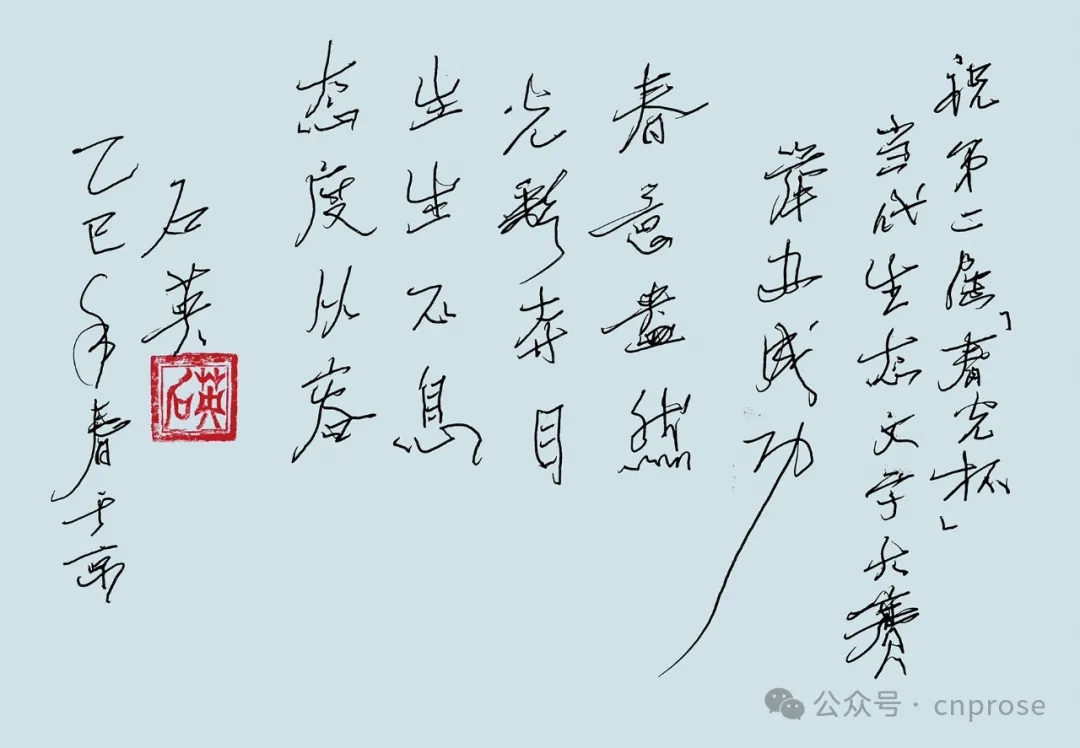 祝第二届「春光杯」
当代生态文学大赛
举办成功
春意盎然
光彩夺目
生生不息
态度从容
石英
石英
乙巳年春于京
公众号·cnprose